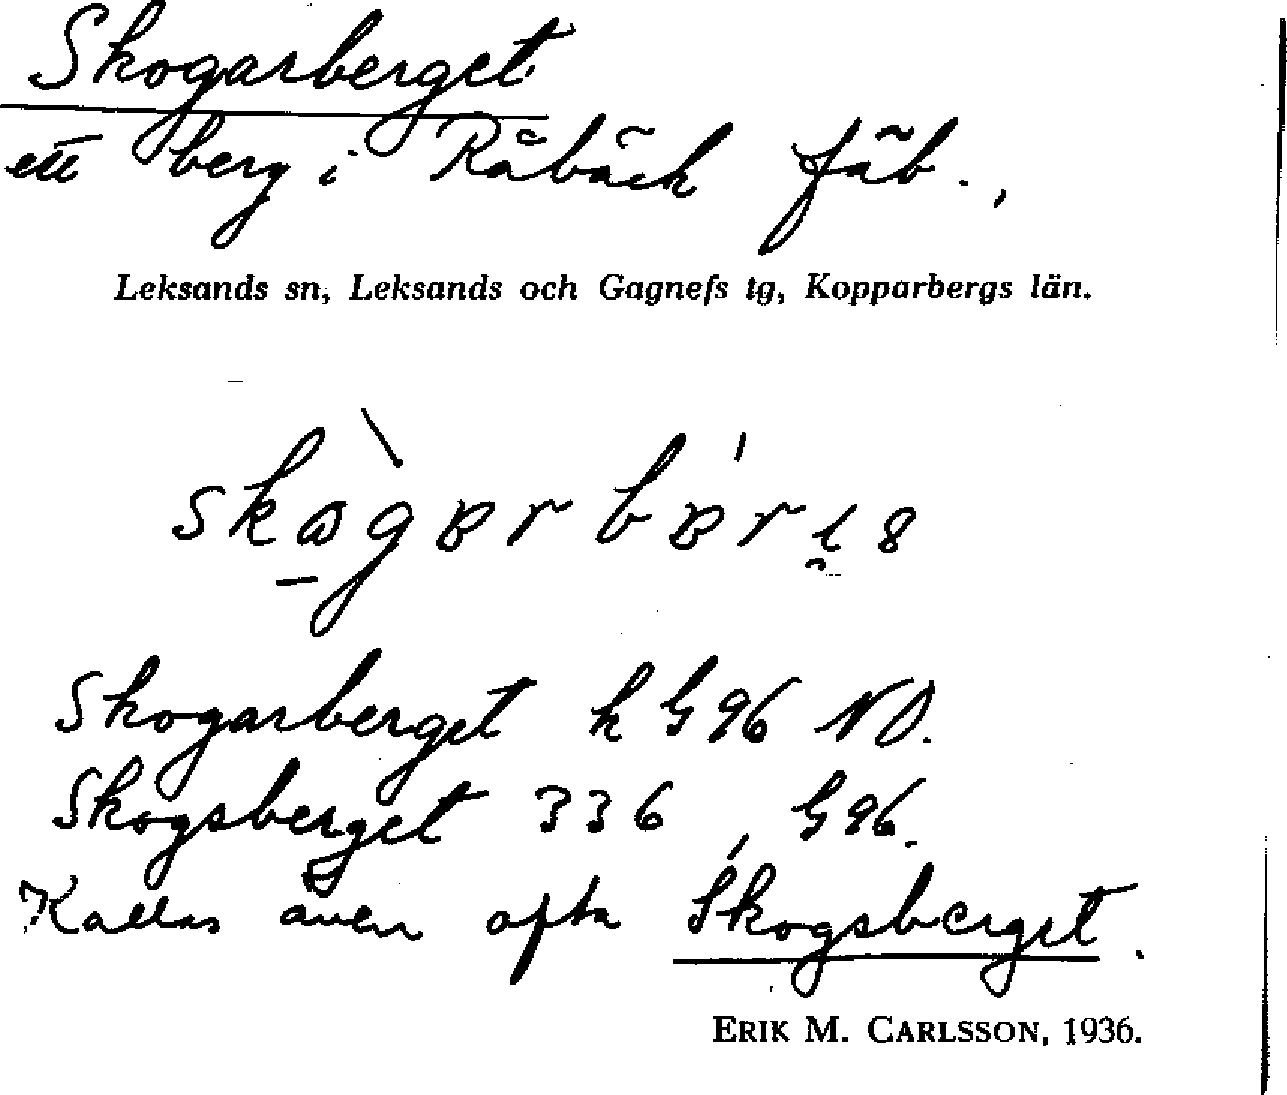 Skogarberget
ett berg i Råbäck fäb.,
Leksands sn, Leksands och Gagnefs tg, Kopparbergs län.
Skogarberget h G 96 NO.
Skogsberget 336, G 96.
Kallas även ofta Skogsberget.
ERIK M. CARLSSON, 1936.